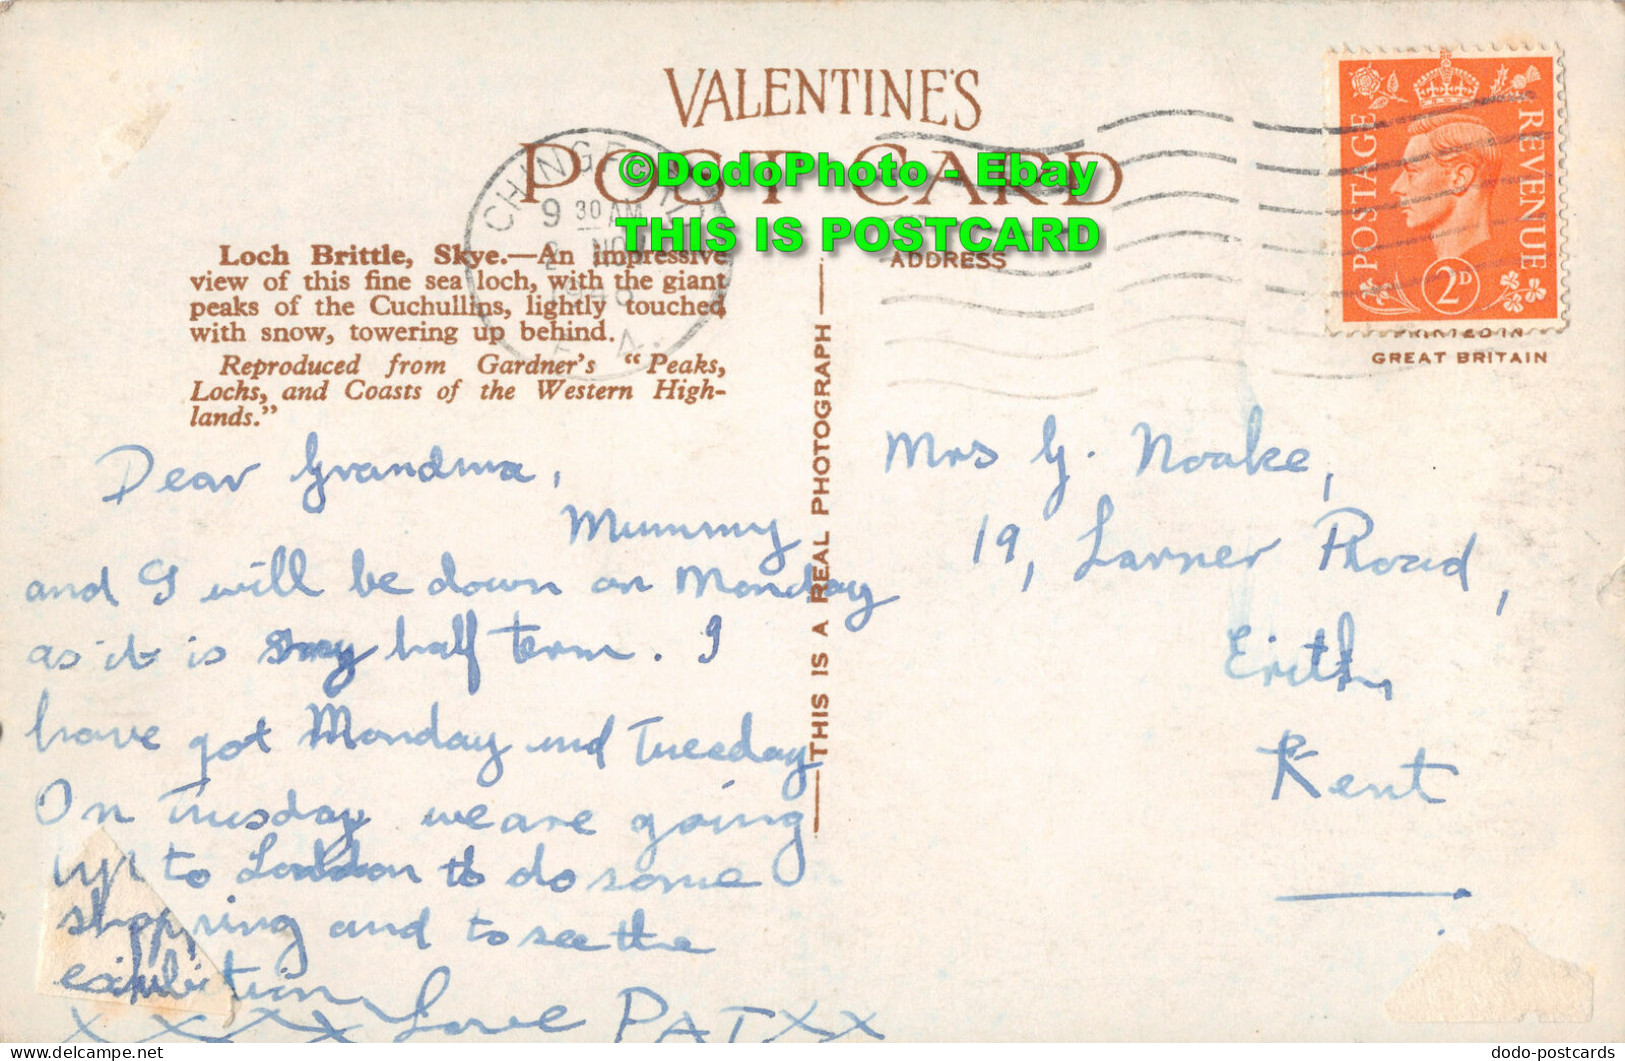 VALENTINE'S
POST CARD
©DodoPhoto - Ebay
THIS IS POSTCARD
9 30 AM
2 NOV
Loch Brittle, Skye.—An impressive
view of this fine sea loch, with the giant
peaks of the Cuchullins, lightly touched
with snow, towering up behind.
Reproduced from Gardner's "Peaks,
Lochs, and Coasts of the Western High-
lands."
Dear Grandma,
Mummy
and I will be down on Monday
as it is my half term. I
have got Monday and Tuesday
On Tuesday we are going
up to London to do some
shopping and to see the
exhibition
XXXX Love PAT XX
THIS IS A REAL PHOTOGRAPH
ADDRESS
POSTAGE
REVENUE
2D
PRINTED IN
GREAT BRITAIN
Mrs G. Noake,
19, Larner Road,
Erith,
Kent
dodo-postcards